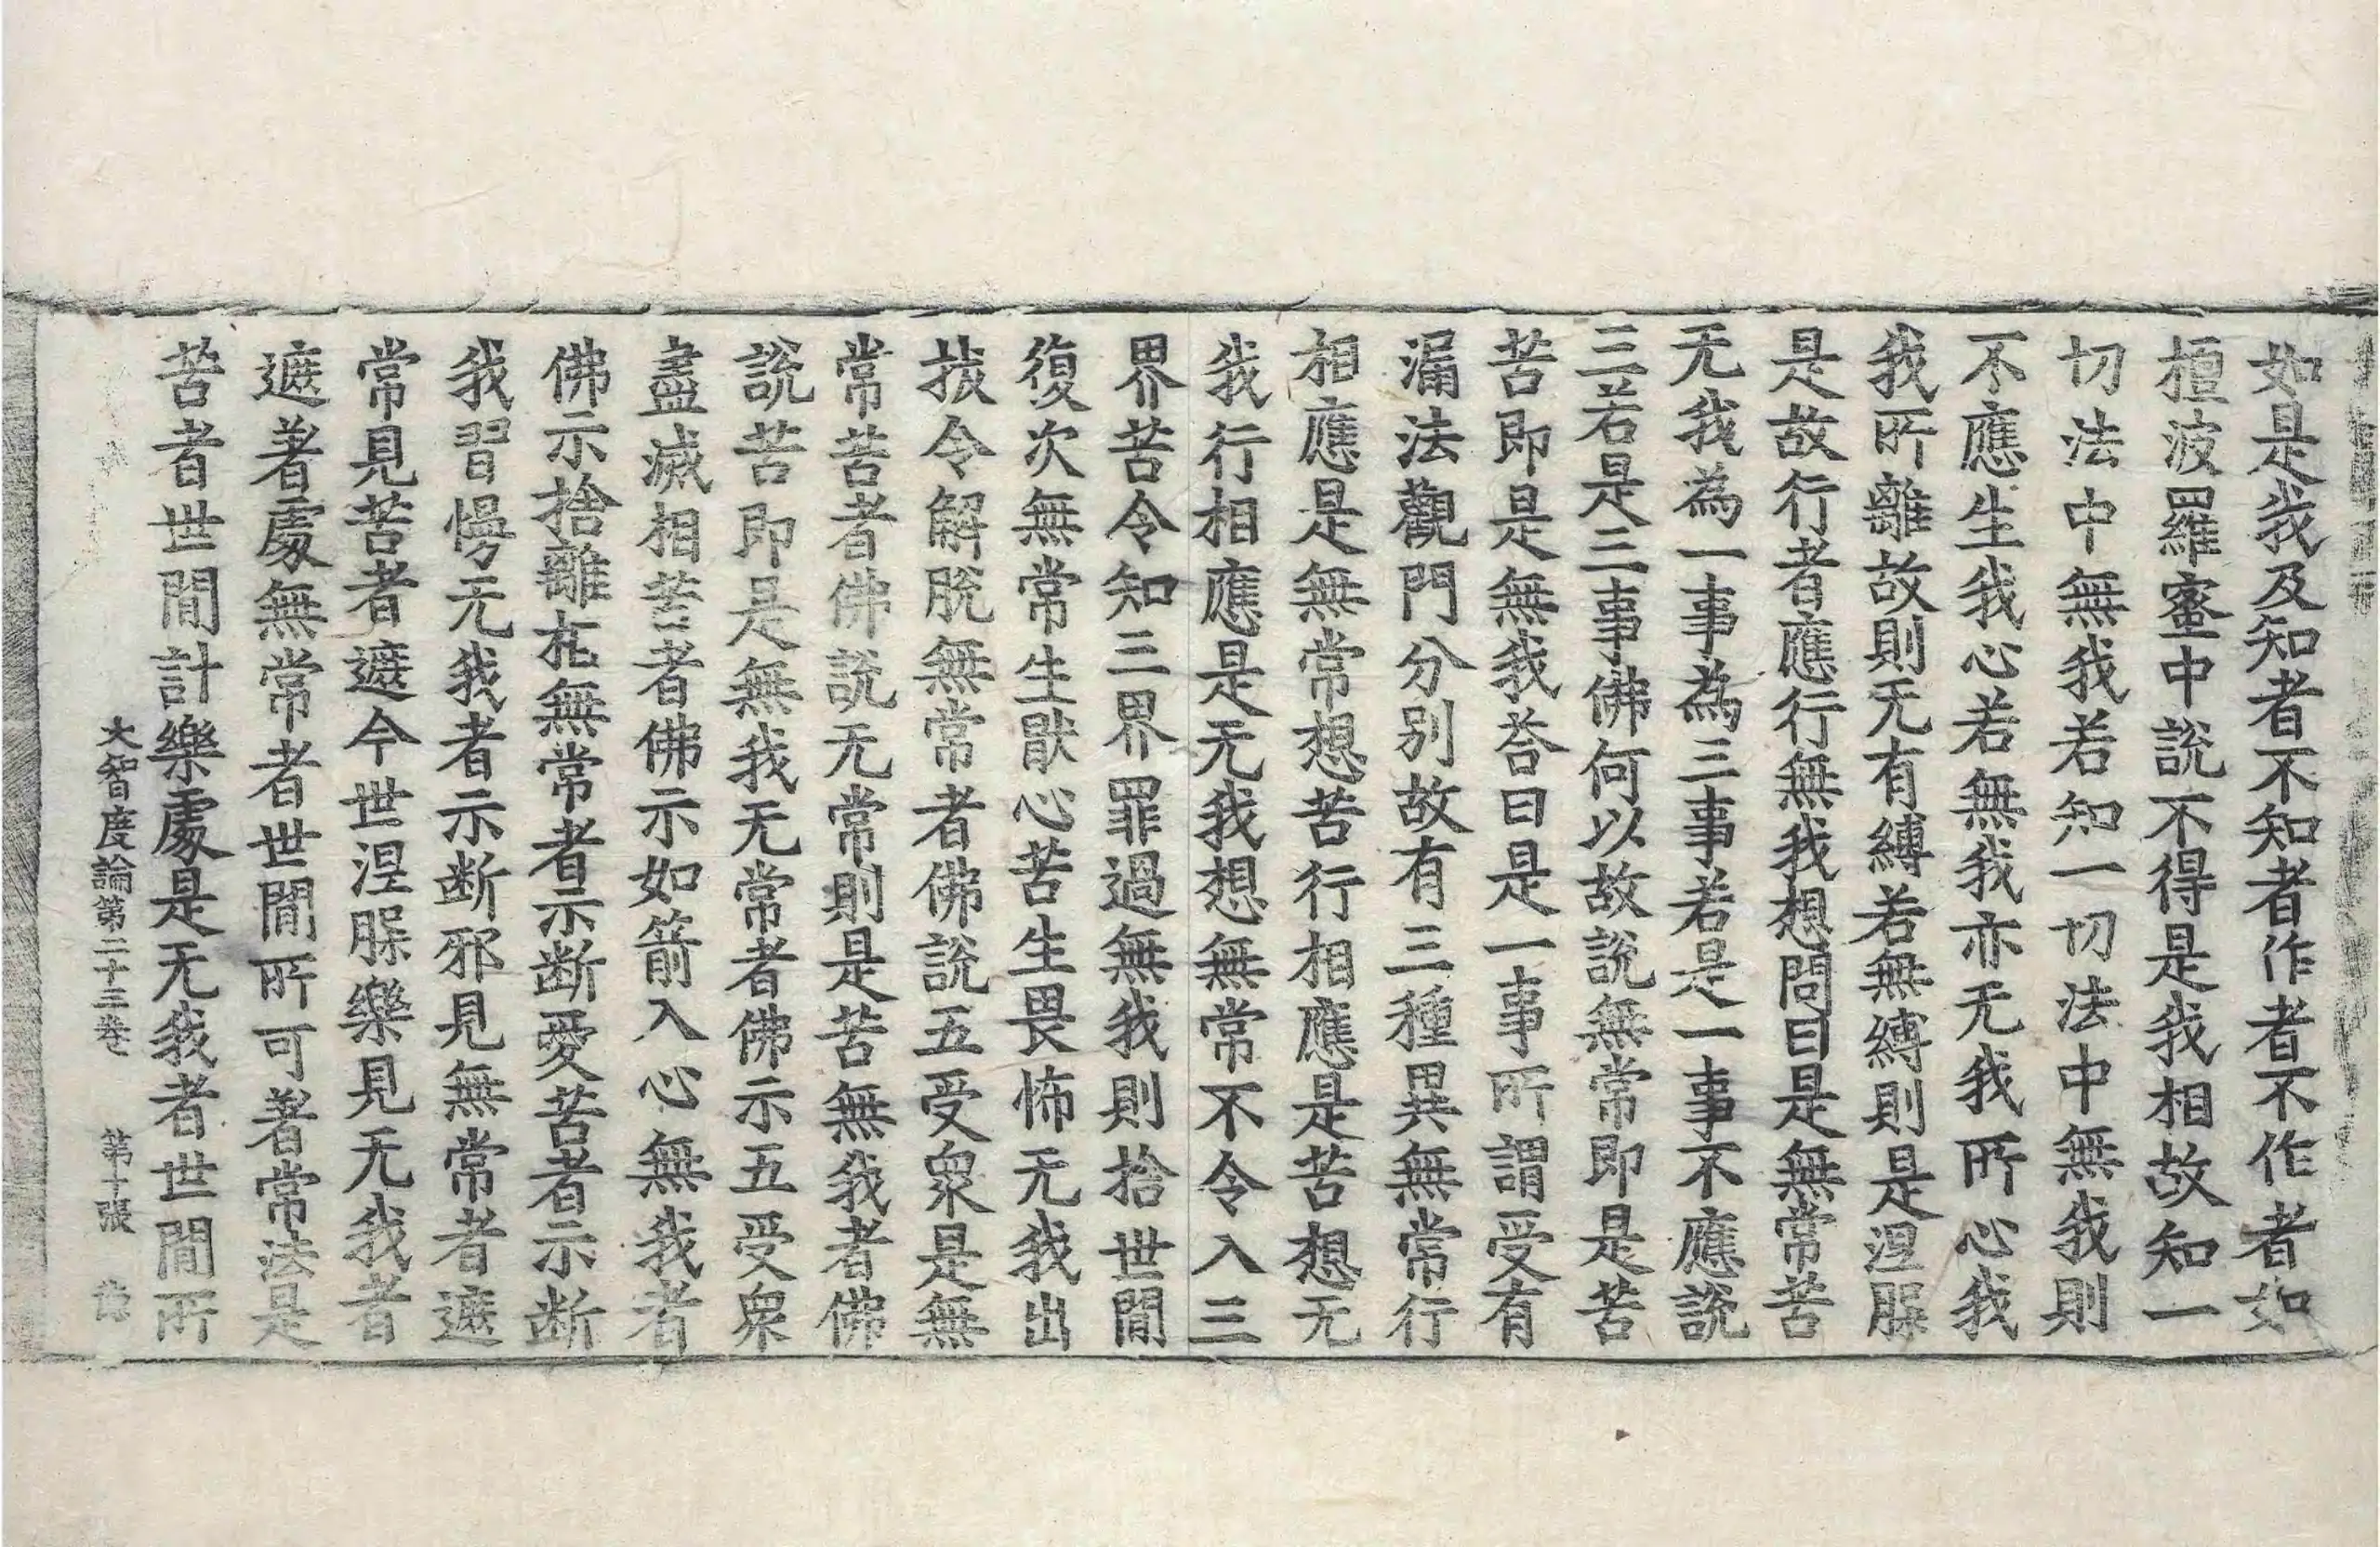 如是我及知者不知者作者不作者如
檀波羅蜜中說不得是我相故知一
切法中無我若知一切法中無我則
不應生我心若無我亦无我所心我
我所離故則无有縛若無縛則是涅槃
是故行者應行無我想問曰是無常苦
无我為一事為三事若是一事不應說
三若是三事佛何以故說無常即是苦
苦即是無我荅曰是一事所謂受有
漏法觀門分別故有三種異無常行
相應是無常想苦行相應是苦想无
我行相應是无我想無常不令入三
界苦令知三界罪過無我則捨世間
復次無常生猒心苦生畏怖无我出
拔令解脫無常者佛說五受衆是無
常苦者佛說无常則是苦無我者佛
說苦即是無我无常者佛示五受衆
盡滅相苦者佛示如箭入心無我者
佛示捨離㢡無常者示断愛苦者示断
我習慢无我者示断邪見無常者遮
常見苦者遮今世涅槃樂見无我者
遮著處無常者世間所可著常法是
苦者世間計樂處是无我者世間所
大智度論第二十三卷 第十張